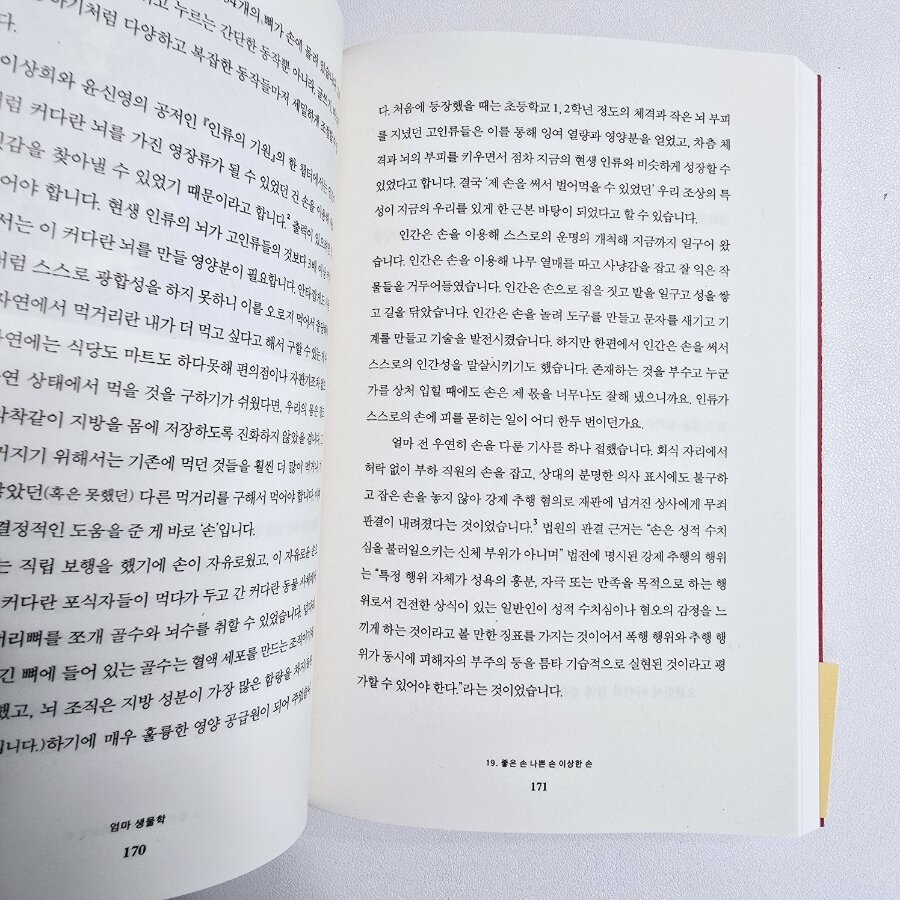 54개의 뼈가 손에 몰려
고 누르는 간단한 동작뿐 아니라, 글쓰기
하기처럼 다양하고 복잡한 동작들마저 세밀하게
다.
이상희와 윤신영의 공저인 『인류의 기원』의 한 챕터에서는
럼 커다란 뇌를 가진 영장류가 될 수 있었던 건 손을 이용해
감을 찾아낼 수 있었기 때문이라고 합니다.² 출력이 있으려면
어야 합니다. 현생 인류의 뇌가 고인류들의 것보다 3배 이상
서는 이 커다란 뇌를 만들 영양분이 필요합니다. 안타깝게도
럼 스스로 광합성을 하지 못하니 이를 오로지 먹어서
자연에서 먹거리란 내가 더 먹고 싶다고 해서 구할 수 있는
연에는 식당도 마트도 하다못해 편의점이나 자판기조차
연 상태에서 먹을 것을 구하기가 쉬웠다면, 우리의 몸은
착같이 지방을 몸에 저장하도록 진화하지 않았을
커지기 위해서는 기존에 먹던 것들을 훨씬 더 많이 먹거나
않았던(혹은 못했던) 다른 먹거리를 구해서 먹어야 합니다.
결정적인 도움을 준 게 바로 ‘손’입니다.
는 직립 보행을 했기에 손이 자유로웠고, 이 자유로운
커다란 포식자들이 먹다가 두고 간 커다란 동물 사체에서
머리뼈를 쪼개 골수와 뇌수를 취할 수 있었습니다.
긴 뼈에 들어 있는 골수는 혈액 세포를 만드는 조직이
했고, 뇌 조직은 지방 성분이 가장 많은 함량을 차지
입니다.)하기에 매우 훌륭한 영양 공급원이 되어 주었
엄마 생물학
170
다. 처음에 등장했을 때는 초등학교 1, 2학년 정도의 체격과 작은 뇌 부피
를 지녔던 고인류들은 이를 통해 잉여 열량과 영양분을 얻었고, 차츰 체
격과 뇌의 부피를 키우면서 점차 지금의 현생 인류와 비슷하게 성장할 수
있었다고 합니다. 결국 ‘제 손을 써서 벌어먹을 수 있었던’ 우리 조상의 특
성이 지금의 우리를 있게 한 근본 바탕이 되었다고 할 수 있습니다.
인간은 손을 이용해 스스로의 운명의 개척해 지금까지 일구어 왔
습니다. 인간은 손을 이용해 나무 열매를 따고 사냥감을 잡고 잘 익은 작
물들을 거두어들였습니다. 인간은 손으로 집을 짓고 밭을 일구고 성을 쌓
고 길을 닦았습니다. 인간은 손을 놀려 도구를 만들고 문자를 새기고 기
계를 만들고 기술을 발전시켰습니다. 하지만 한편에서 인간은 손을 써서
스스로의 인간성을 말살시키기도 했습니다. 존재하는 것을 부수고 누군
가를 상처 입힐 때에도 손은 제 몫을 너무나도 잘해 냈으니까요. 인류가
스스로의 손에 피를 묻히는 일이 어디 한두 번이던가요.
얼마 전 우연히 손을 다룬 기사를 하나 접했습니다. 회식 자리에서
허락 없이 부하 직원의 손을 잡고, 상대의 분명한 의사 표시에도 불구하
고 잡은 손을 놓지 않아 강제 추행 혐의로 재판에 넘겨진 상사에게 무죄
판결이 내려졌다는 것이었습니다.³ 법원의 판결 근거는 “손은 성적 수치
심을 불러일으키는 신체 부위가 아니며” 법전에 명시된 강제 추행의 행위
는 “특정 행위 자체가 성욕의 흥분, 자극 또는 만족을 목적으로 하는 행
위로서 건전한 상식이 있는 일반인이 성적 수치심이나 혐오의 감정을 느
끼게 하는 것이라고 볼 만한 징표를 가지는 것이어서 폭행 행위와 추행 행
위가 동시에 피해자의 부주의 등을 틈타 기습적으로 실현된 것이라고 평
가할 수 있어야 한다.”라는 것이었습니다.
19. 좋은 손 나쁜 손 이상한 손
171